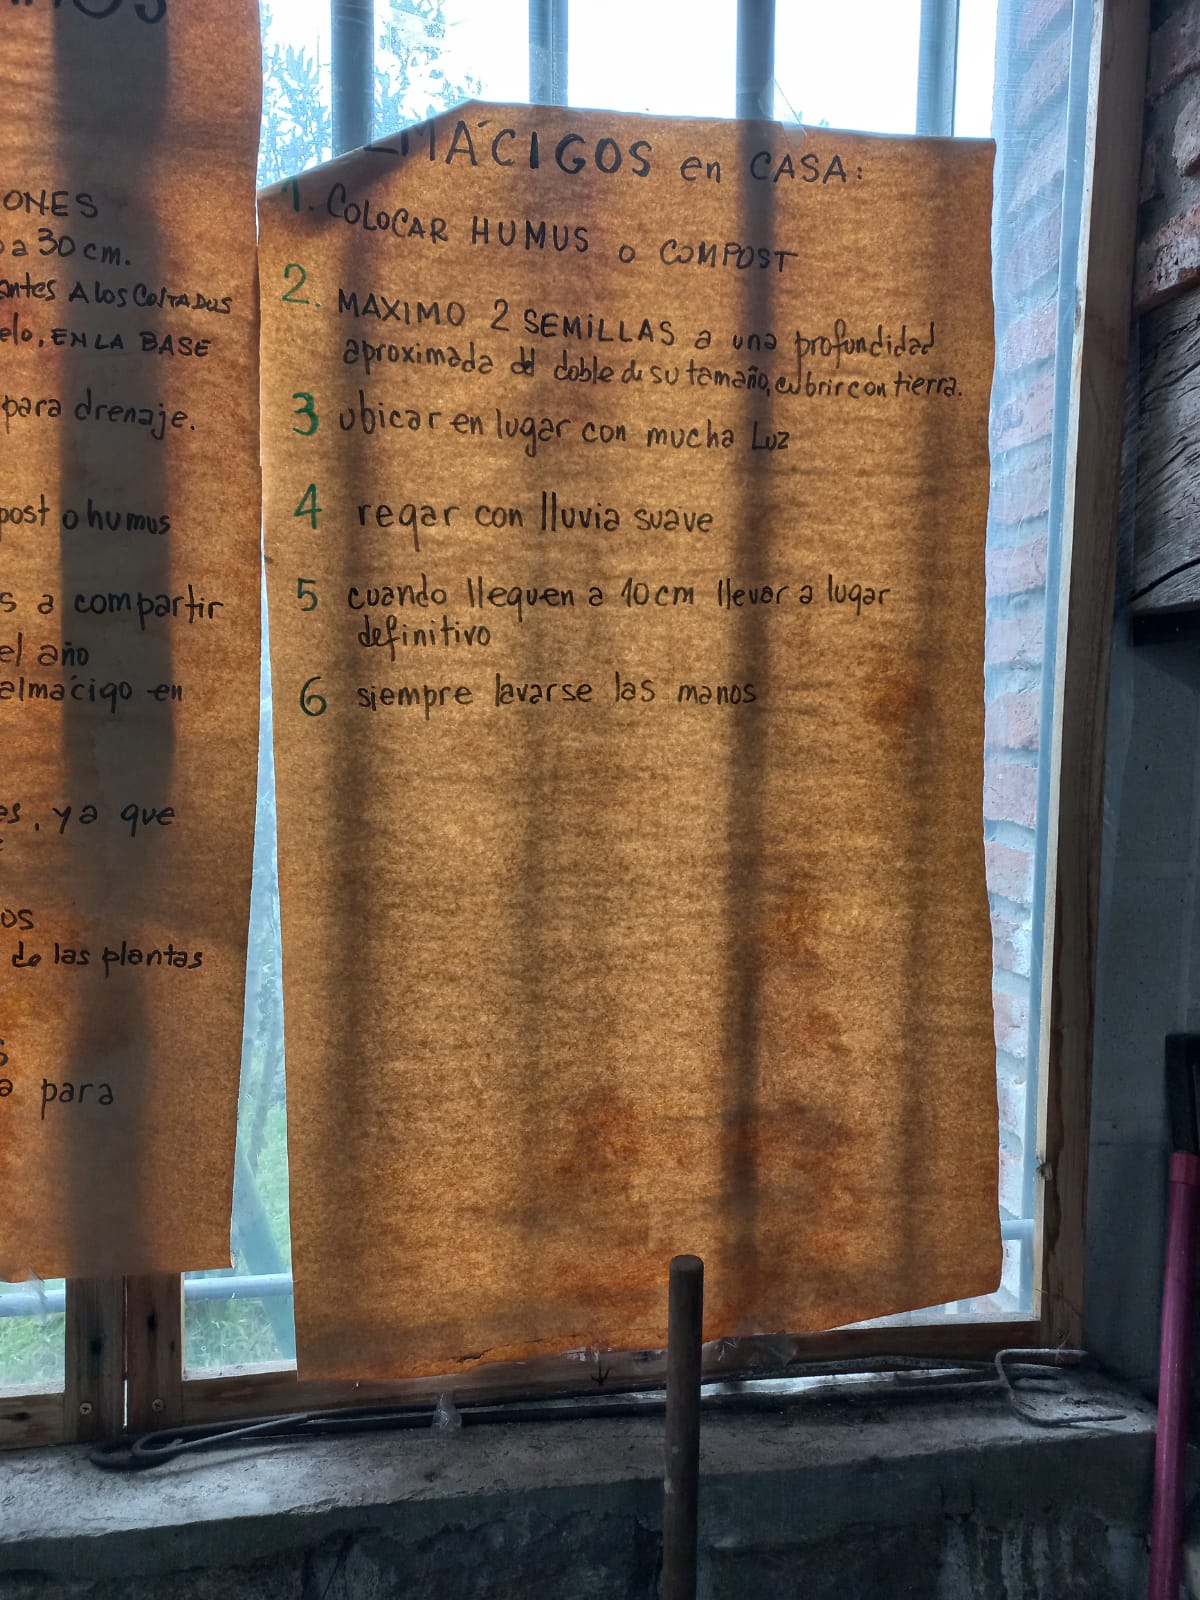 ONES
a 30 cm.
A los COSTADOS
EN LA BASE
para drenaje.
o humus
a compartir
el año
almácigo en
ya que
de las plantas
para
MÁCIGOS en CASA:
1. COLOCAR HUMUS o COMPOST
2. MAXIMO 2 SEMILLAS a una profundidad
aproximada del doble de su tamaño, cubrir con tierra.
3 ubicar en lugar con mucha Luz
4 regar con lluvia suave
5 cuando lleguen a 10cm llevar a lugar
definitivo
6 siempre lavarse las manos